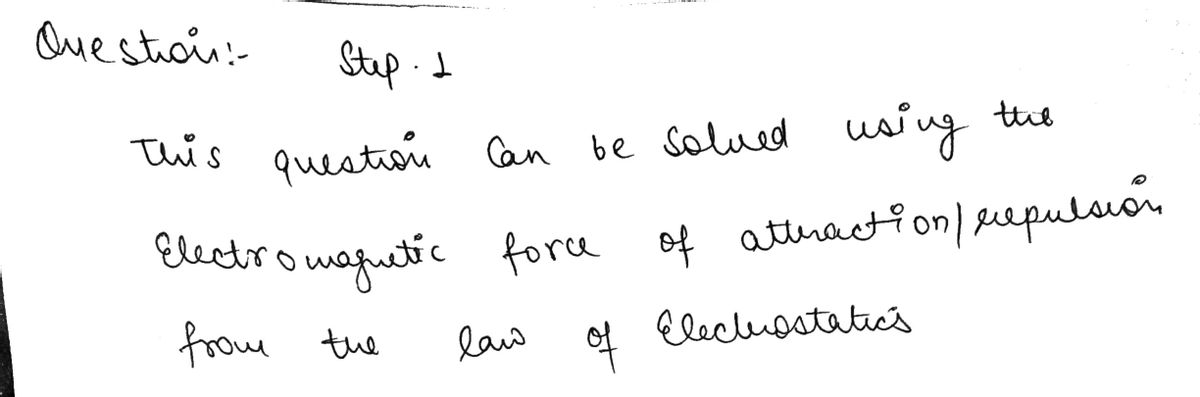 Question:- Step. 1
This question Can be Solved using the
Electromagnetic force of attraction/repulsion
from the law of Electrostatics